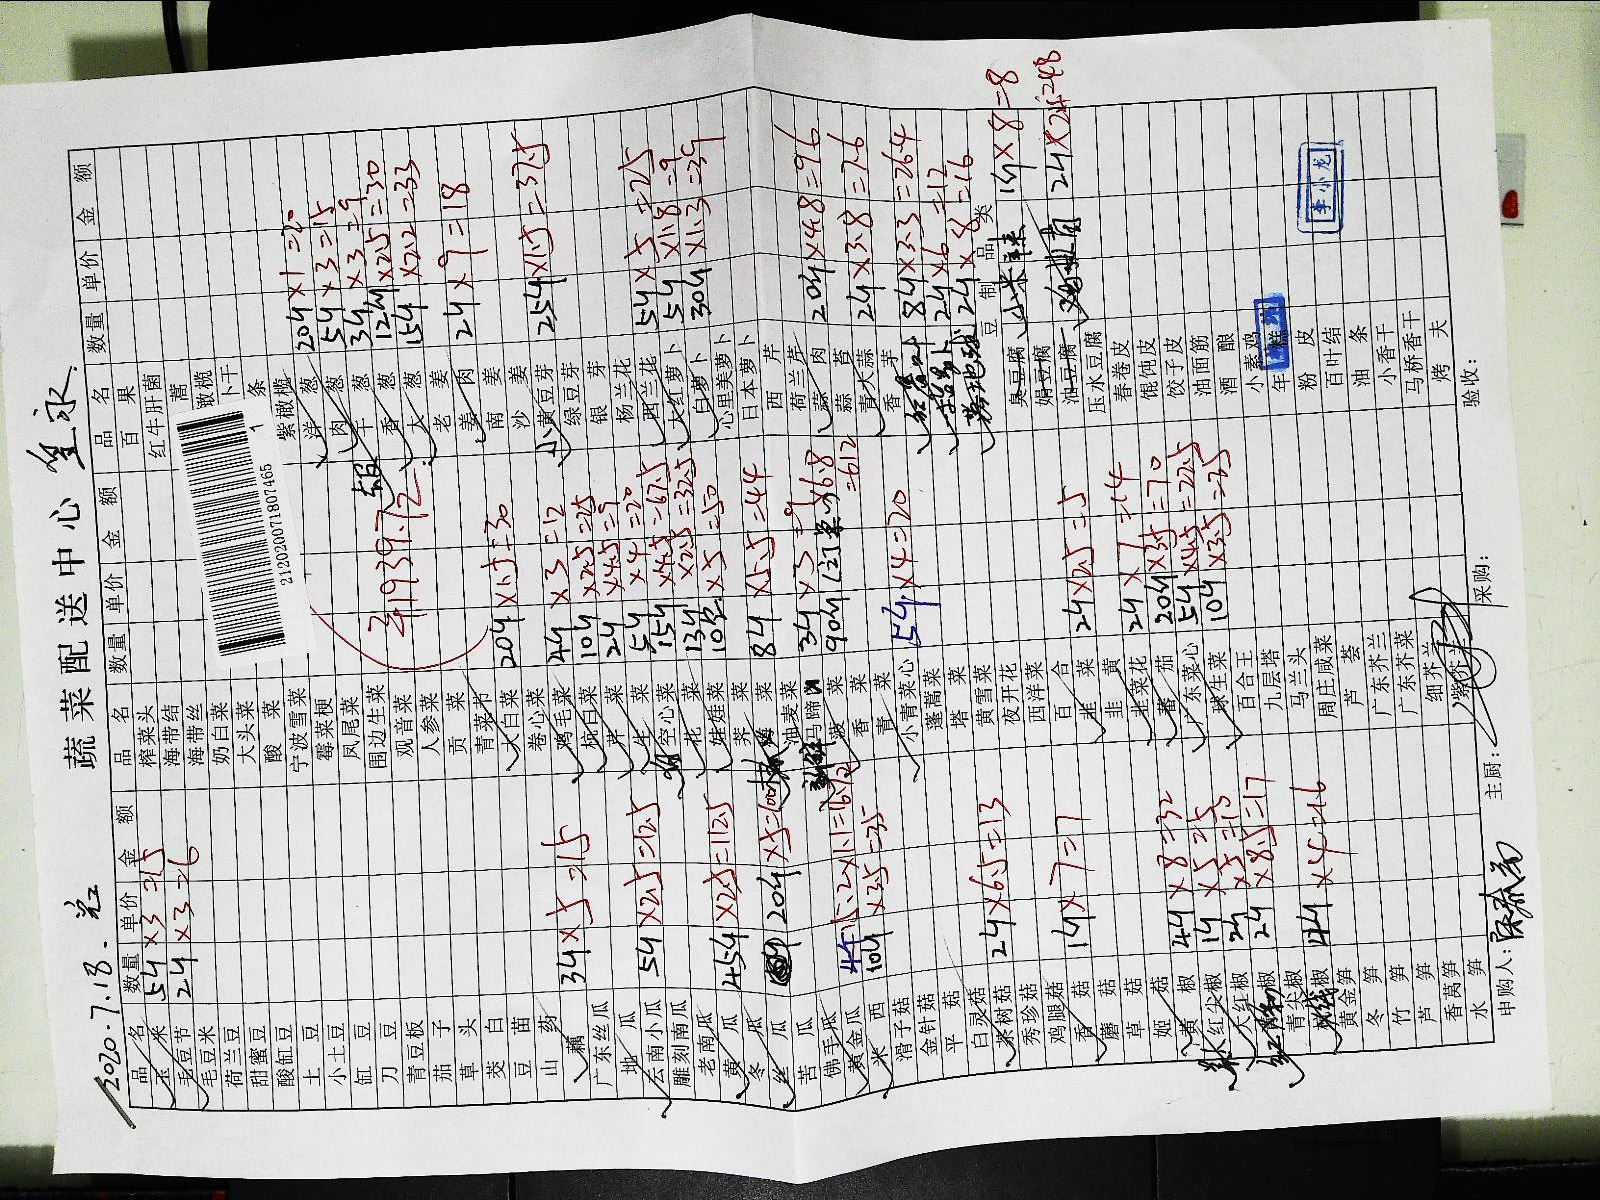 蔬菜配送中心
2020.7.18.
品名 数量 单价 金额 品名 数量 单价 金额 品名 数量 单价 金额
玉米 5斤×3=15
毛豆节 2斤×3=6
毛豆米
荷兰豆
甜蜜豆
酸缸豆
土豆
小土豆
缸豆
刀豆
青豆板
茄子
草头
茭白
豆苗
山药
藕 3斤×5=15
广东丝瓜
地瓜
云南小瓜 5斤×2.5=12.5
雕刻南瓜
老南瓜
黄瓜 45斤×2.5=112.5
冬瓜
丝瓜 20斤×5=100
苦瓜
佛手瓜
黄金瓜 15.2×1.1=16.72
米西 10斤×3.5=35
滑子菇
金针菇
平菇
白灵菇
茶树菇 2斤×6.5=13
秀珍菇
鸡腿菇
香菇 1斤×7=7
蘑菇
草菇
姬菇
黄椒 4斤×8=32
大红尖椒 1斤×5=5
大红椒 2斤×5=10
椒 2斤×8.5=17
青尖椒
杭椒 4斤×4=16
黄金笋
冬笋
竹笋
芦笋
香莴笋
水笋
榨菜头
海带结
海带丝
奶白菜
大头菜
酸菜
宁波雪菜
霉菜梗
凤尾菜
围边生菜
观音菜
人参菜
贡菜
青菜节
大白菜 20斤×1.5=30
卷心菜
鸡毛菜 4斤×3=12
梳白菜 10斤×2.5=25
芹菜 2斤×4.5=9
生菜 5斤×4=20
空心菜 15斤×4.5=67.5
花菜 13斤×2.5=32.5
娃娃菜 10包×5=50
荠菜
菜 8斤×5.5=44
油麦菜
新鲜马蹄 3斤×3=9
菠菜 90斤 ×6.8=612
香菜
青菜
小青菜心 5斤×4=20
蓬蒿菜
塔菜
黄雪菜
夜开花
西洋菜
百合
韭菜 2斤×2.5=5
韭黄
韭菜花 2斤×7=14
蕃茄 20斤×3.5=70
广东菜心 5斤×4.5=22.5
球生菜 10斤×3.5=35
百合王
九层塔
马兰头
周庄咸菜
芦荟
广东芥兰
广东芥菜
细芥兰
紫芥兰
百果
红牛肝菌
212020071807465
1
紫橄榄
洋葱 20斤×1=20
肉葱 5斤×3=15
羊葱 3斤×3=9
香葱 12斤×2.5=30
大葱 15斤×2.2=33
老姜
姜肉 2斤×9=18
南姜
沙姜
小黄豆芽 25斤×1.5=37.5
绿豆芽
银芽
杨兰花
西兰花 5斤×5=25
大红萝卜 5斤×1.8=9
白萝卜 30斤×1.3=39
心里美萝卜
日本萝卜
西芹
荷兰芹
蒜肉 20斤×4.8=96
蒜苔
青大蒜 2斤×3.8=7.6
香芽
8斤×3.3=26.4
2斤×6=12
2斤×8=16
豆制品类
臭豆腐 小米辣 1斤×8=8
娟豆腐
油豆腐
压水豆腐
春卷皮
馄饨皮
饺子皮
油面筋
酒酿
小素鸡
年糕
粉皮
百叶结
油条
小香干
马桥香干
烤夫
李小龙
申购人: 主厨: 采购: 验收: